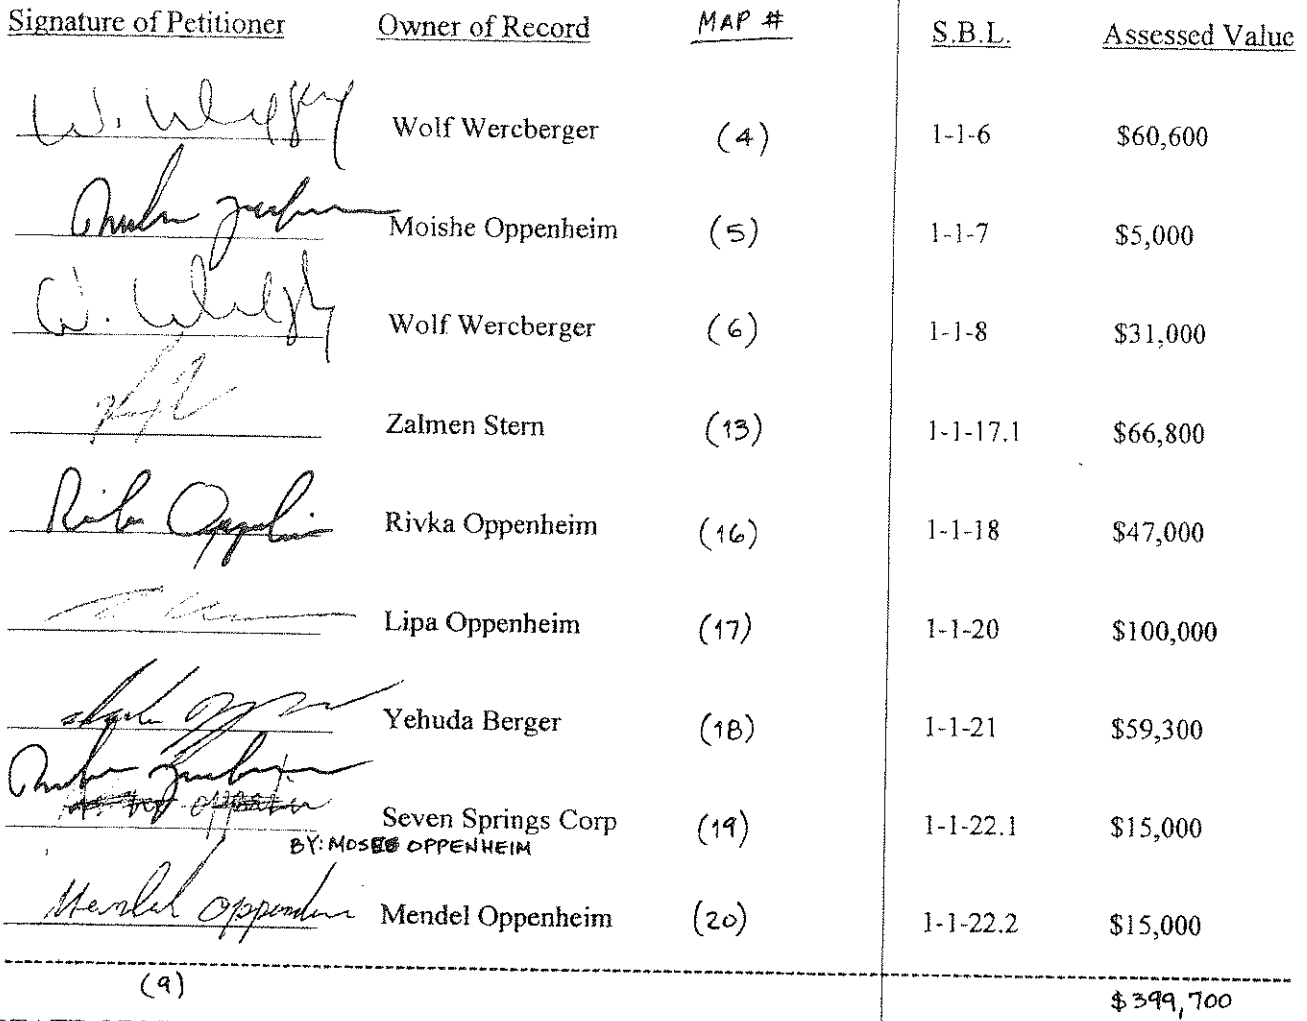 Signature of Petitioner Owner of Record MAP # S.B.L. Assessed Value
Wolf Wercberger (4) 1-1-6 $60,600
Moishe Oppenheim (5) 1-1-7 $5,000
W. Wolf Wercberger (6) 1-1-8 $31,000
Zalmen Stern (13) 1-1-17.1 $66,800
Rivka Oppenheim (16) 1-1-18 $47,000
Lipa Oppenheim (17) 1-1-20 $100,000
Yehuda Berger (18) 1-1-21 $59,300
Seven Springs Corp (19) 1-1-22.1 $15,000
BY: MOSES OPPENHEIM
Mendel Oppenheim Mendel Oppenheim (20) 1-1-22.2 $15,000
(9) $399,700